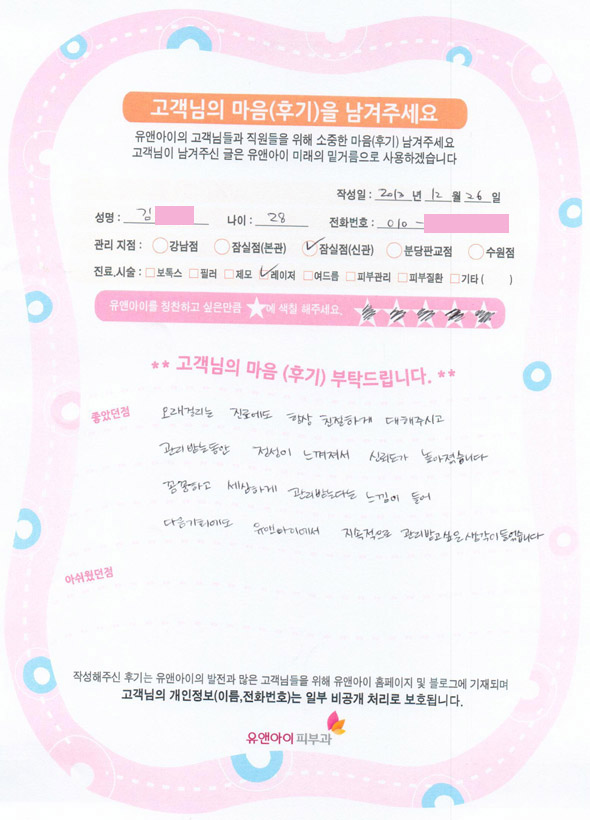 고객님의 마음(후기)을 남겨주세요
유앤아이의 고객님들과 직원들을 위해 소중한 마음(후기) 남겨주세요
고객님이 남겨주신 글은 유앤아이 미래의 밑거름으로 사용하겠습니다
작성일 : 2013 년 12 월 26 일
성명 : 김 나이 : 28 전화번호 : 010 -
관리 지점 : 강남점 잠실점(본관) 잠실점(신관) 분당판교점 수원점
진료,시술 : 보톡스 필러 제모 레이저 여드름 피부관리 피부질환 기타 ( )
유앤아이를 칭찬하고 싶은만큼 ★에 색칠 해주세요.
** 고객님의 마음 (후기) 부탁드립니다. **
좋았던점 오래걸리는 진료에도 항상 친절하게 대해주시고
관리받는동안 정성이 느껴져서 신뢰도가 높아졌습니다
꼼꼼하고 세심하게 관리받는다는 느낌이 들어
다음관리에도 유앤아이에서 지속적으로 관리받고싶은 생각이 들었습니다
아쉬웠던점
작성해주신 후기는 유앤아이의 발전과 많은 고객님들을 위해 유앤아이 홈페이지 및 블로그에 기재되며
고객님의 개인정보(이름,전화번호)는 일부 비공개 처리로 보호됩니다.
유앤아이 피부과